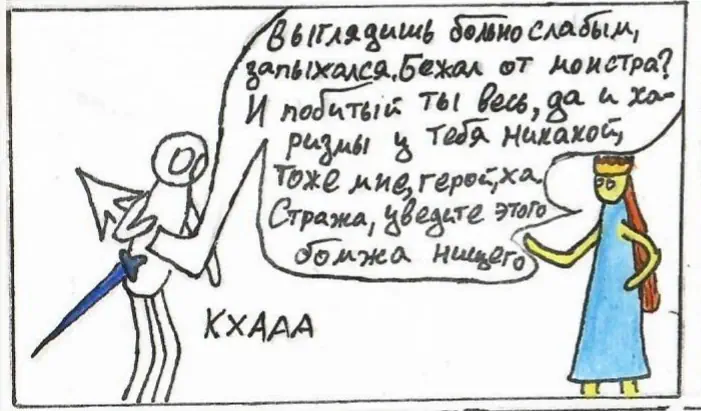 Выглядишь больно слабым,
запыхался. Бежал от монстра?
И побитый ты весь, да и ха-
ризмы у тебя никакой,
Тоже мне, герой, ха.
Стража, уведите этого
бомжа нищего
КХААА